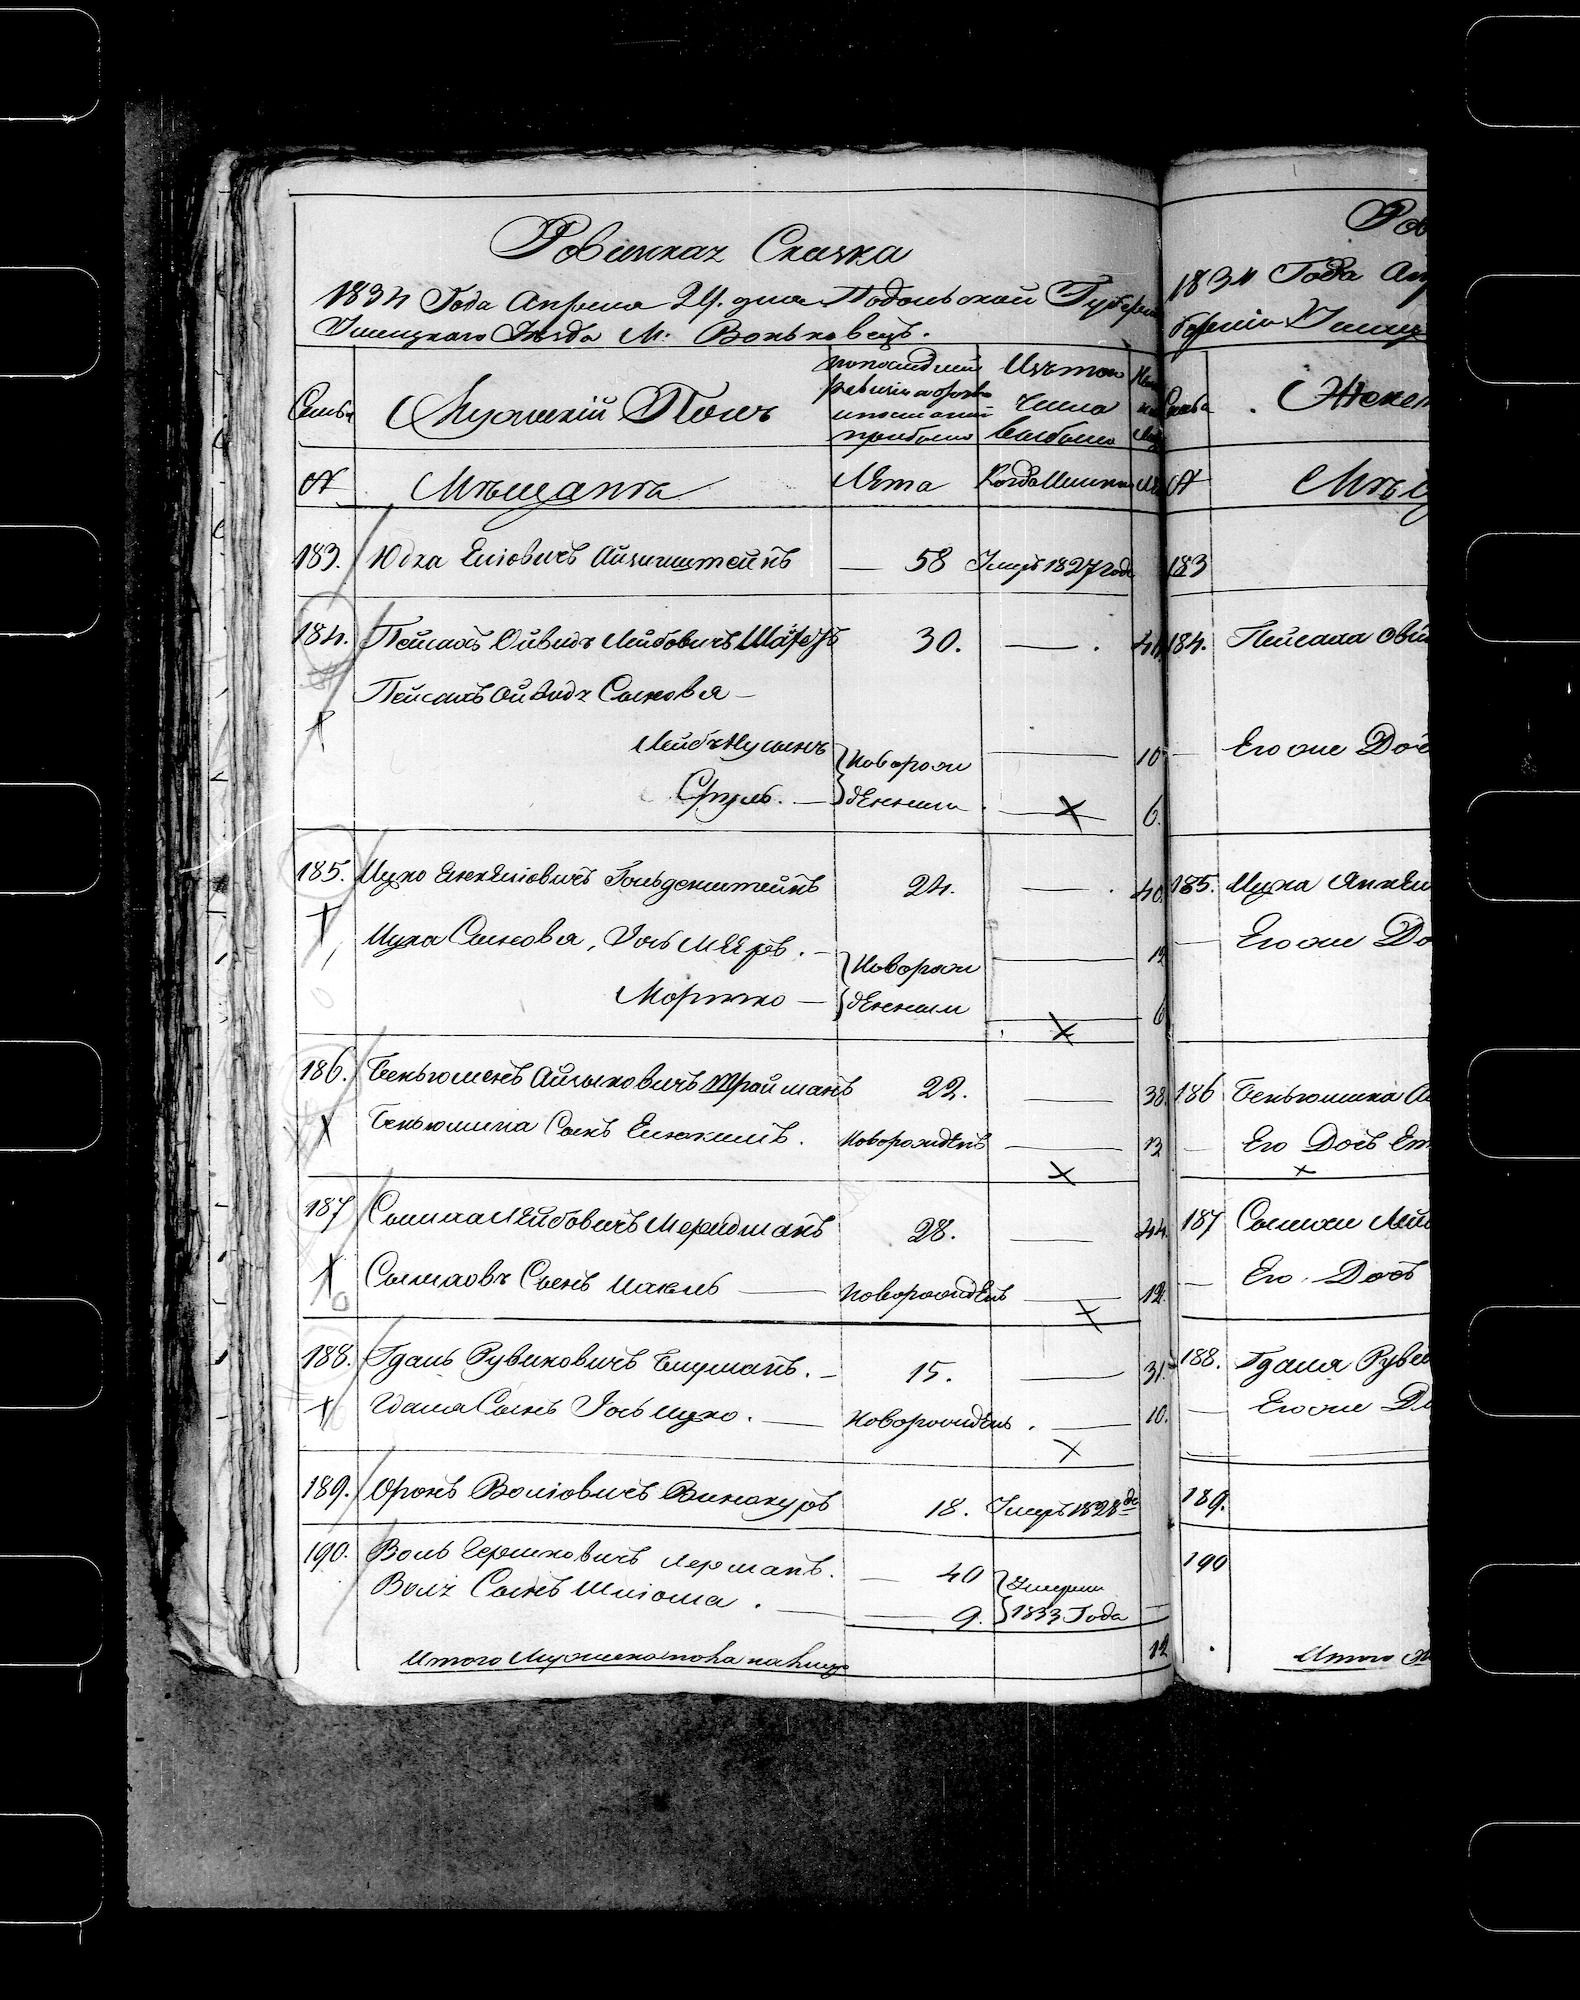 Ревизская Сказка
1834 Года Апреля 24. дня Подольской Губерніи
Ушицкаго Уѣзда М. Воньковецъ.
Семья
Мужескій Полъ
по последней ревизіи состояло и после оной прибыло
Изъ того Числа выбыло
№
Мѣщанѣ
Лѣта
Когда Именно
183. Юдка Еліовичъ Айзинштейнъ — 58 Умеръ 1827 года
184. Пейсахъ Ойвидъ Лейбовичъ 30. — . 40
Пейсахъ Ойвидъ Сыновья —
Лейбъ Нусынъ } Новорож — 10
Сруль. — } дЕнныи — 6.
185. Ицко Еліовичъ Гольденштейнъ 24. — . 40
Ицка Сыновья, Іось Меяръ. — } Новорож — 12
Моршко — } дЕнныи — 6
186. Беньюменъ Айзыковичъ Тройманъ 22. — 38.
Беньюмина Сынъ НоворождЕнъ — 12
187 Сымха Лейбовичъ 28. — 44.
Сымховъ Сынъ НоворождЕнъ — 12.
188. Гдаль Рувиновичъ — 15. — 31.
Гдаля Сынъ Іось Ицко. — Новорождѣнъ . — 10.
189. Оронъ Воліовичъ Винокуръ 18. Умеръ 1828
190. Воль Гершковичъ Лерманъ. — 40 } Умерли
Волъ Сынъ Шліома. — 9. } 1833 Года —
Итого Мужеска пола на лицо 12
Рев
1834 Года Апр
берніи Ушиц
Семья . Женс
№ Мѣщ
183
184. Пейсаха Ойви
Его же Доч
185. Ицка
— Его же До
186 Беньюмина А
— Его Дочь
187 Сымхи Лей
— Его Дочь
188. Гдаля Руви
— Его же До
189.
190
Итого Ж